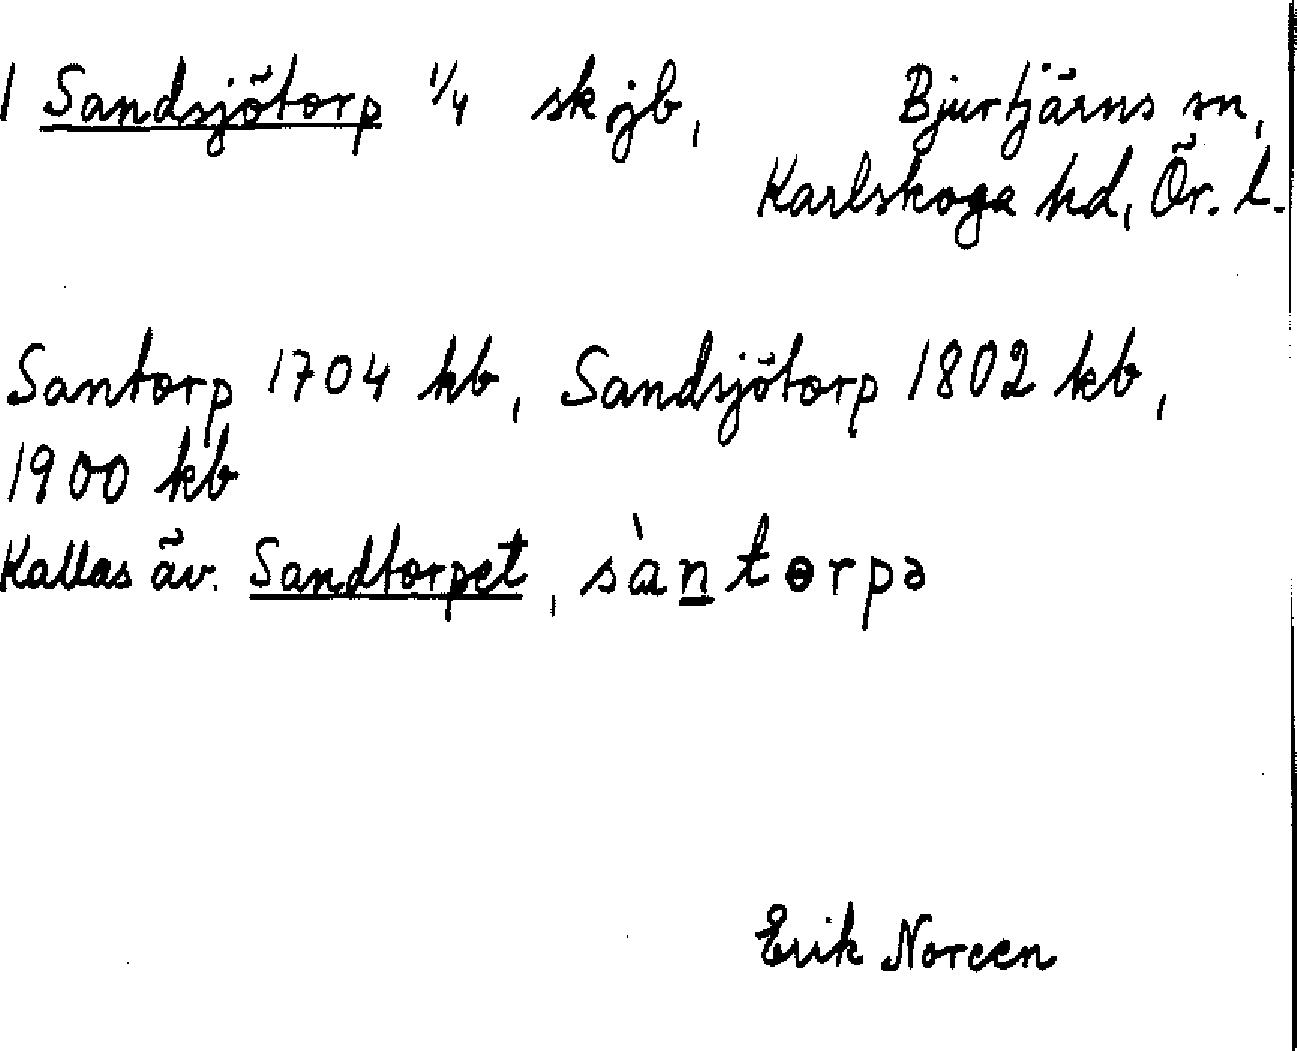 1 Sandsjötorp 1/4 skjb, Bjurtjärns sn,
Karlskoga hd, Ör. l.
Santorp 1704 kb, Sandsjötorp 1802 kb,
1900 kb
Kallas äv. Sandtorpet, sàntɵrpə
Erik Noreen